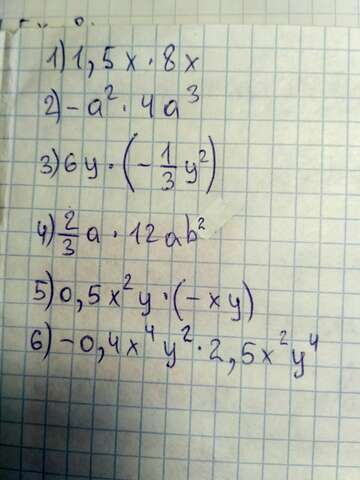 1) 1,5x · 8x
2) -a² · 4a³
3) 6y · (-1/3 y²)
4) 2/3 a · 12ab²
5) 0,5x²y · (-xy)
6) -0,4x⁴y² · 2,5x²y⁴